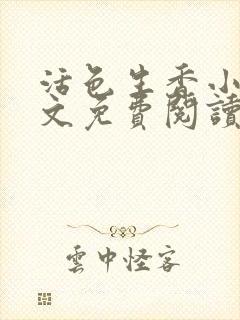 活色生香小
文免費閱讀
雲中怪客